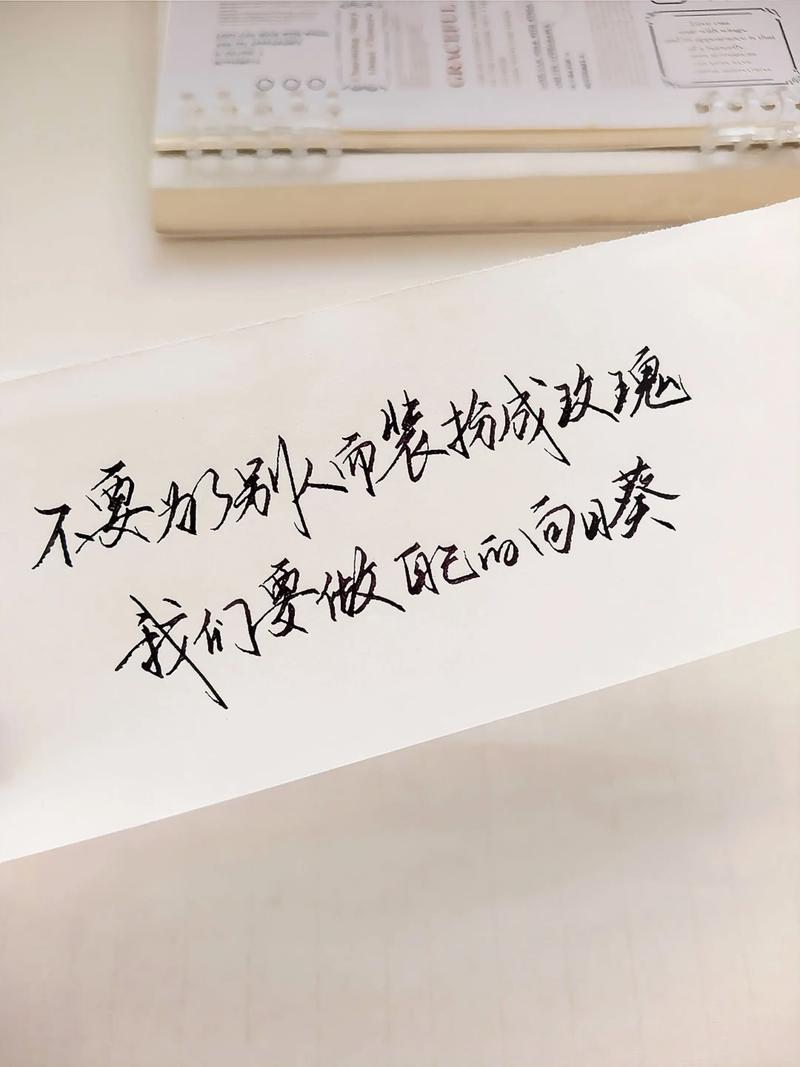 GRACEFUL
不要为了别人而装扮成玫瑰
我们要做自己的向日葵